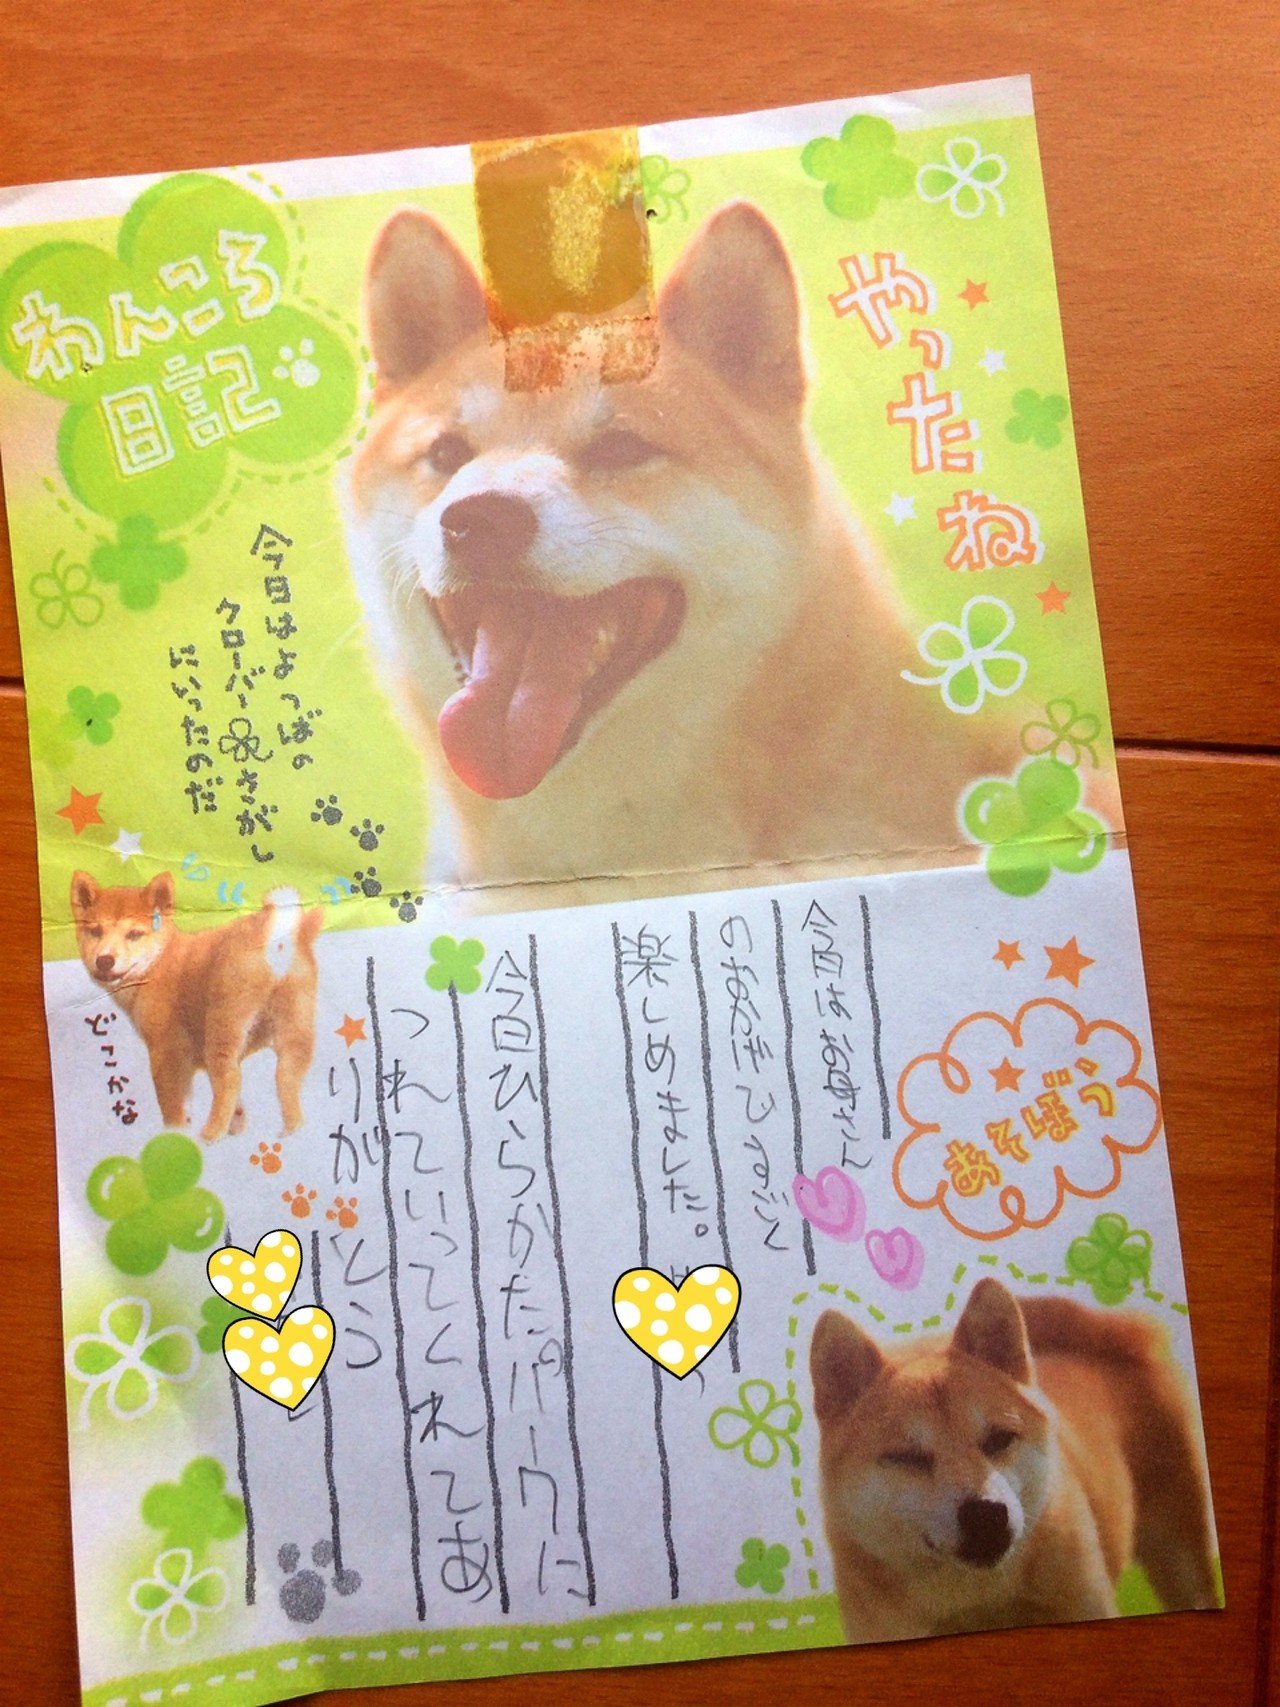 わんころ
日記
やったね
今日はよつばの
クローバーさがし
にいったのだ
どこかな
あそぼう
今日は
のおかげですごく
楽しめました。
今日ひらかたパークに
つれていってくれてあ
りがとう